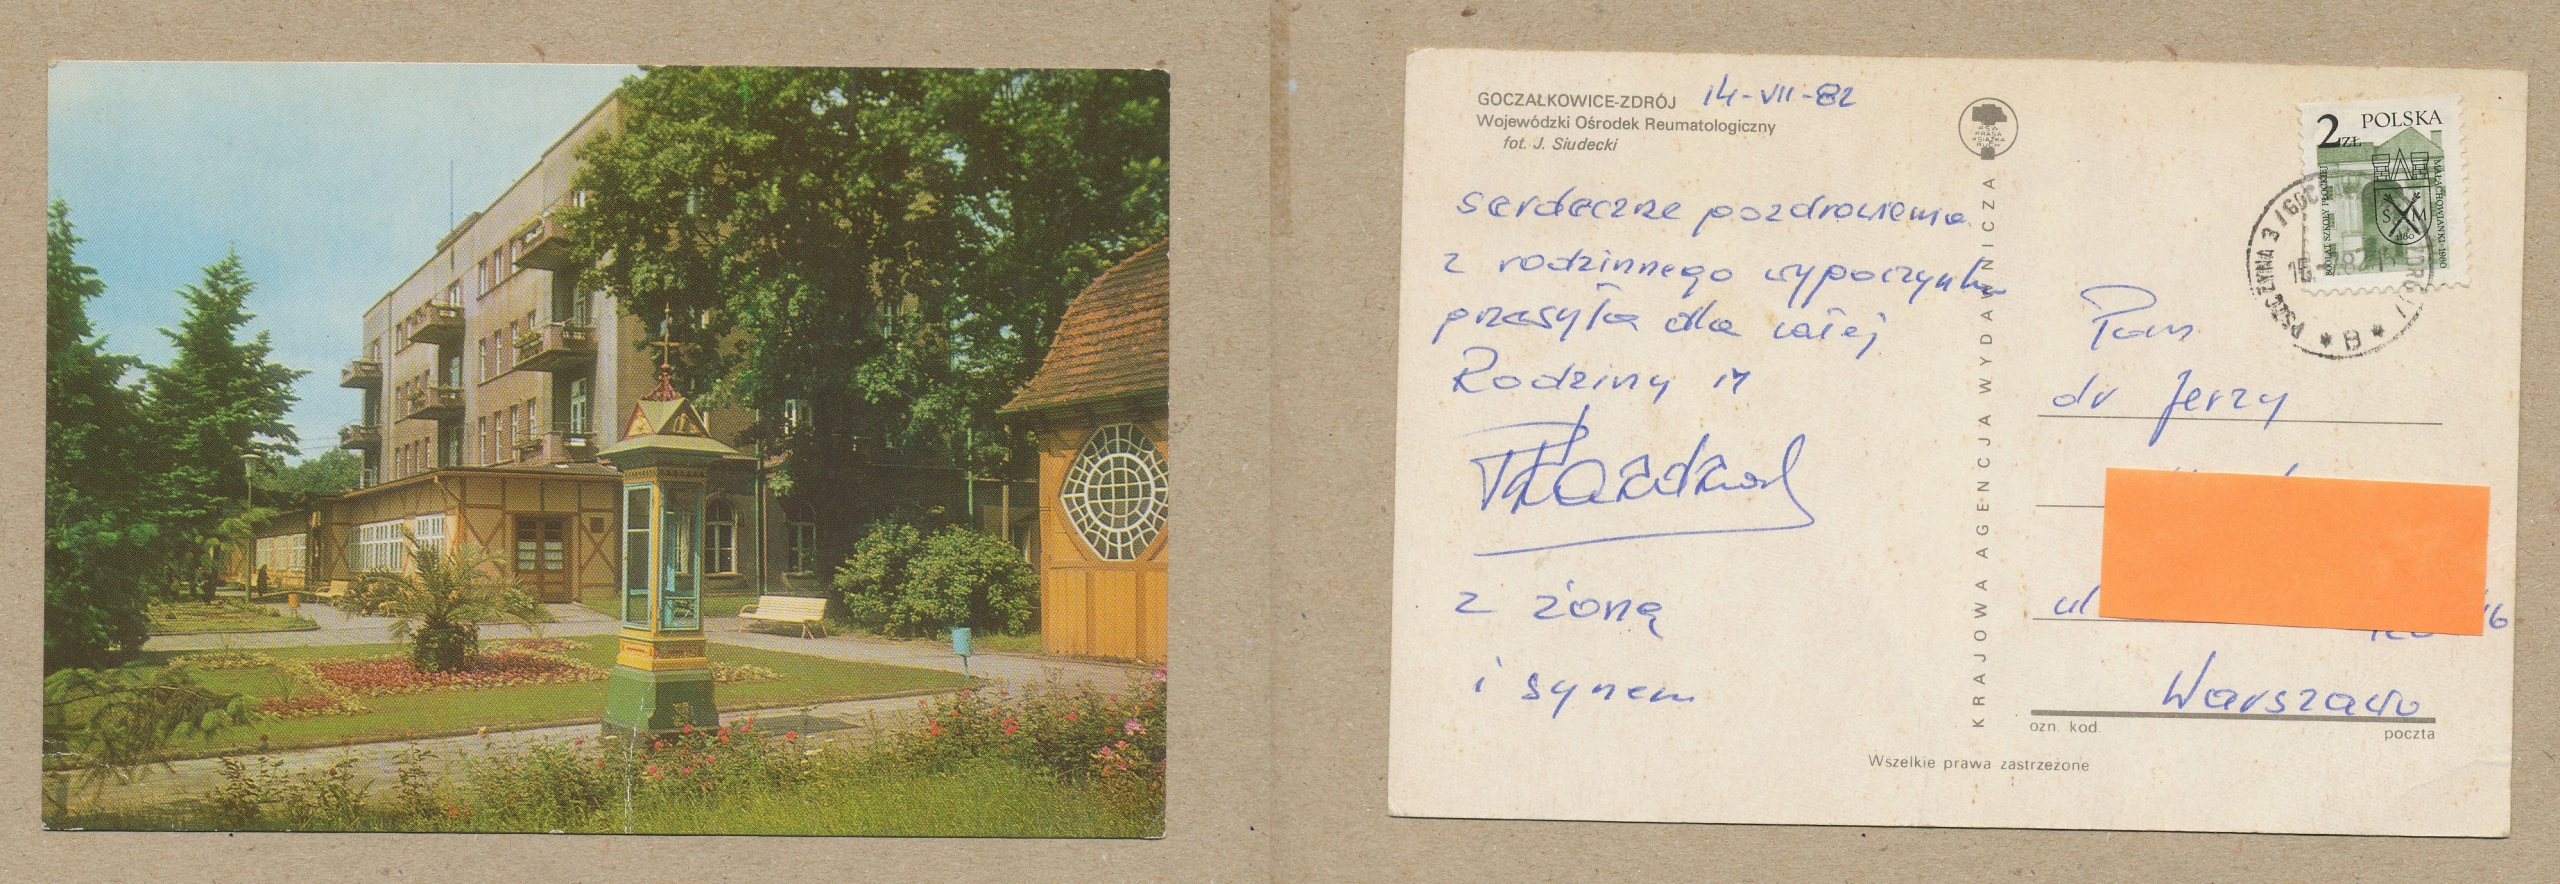 GOCZAŁKOWICE-ZDRÓJ 14-VII-82
Wojewódzki Ośrodek Reumatologiczny
fot. J. Siudecki
serdeczne pozdrowienia
z rodzinnego wypoczynku
przesyła dla całej
Rodziny
z żoną
i synem
KRAJOWA AGENCJA WYDAWNICZA
RSW
PRASA
KSIĄŻKA
RUCH
2 ZŁ POLSKA
800 LAT SZKOŁY PŁOCKIEJ
MAŁACHOWIANKI - 1980
S M
1180
PSZCZYNA 3 /GOCZAŁ
B
Pan
dr Jerzy
ul
16
Warszawa
ozn. kod.
poczta
Wszelkie prawa zastrzeżone